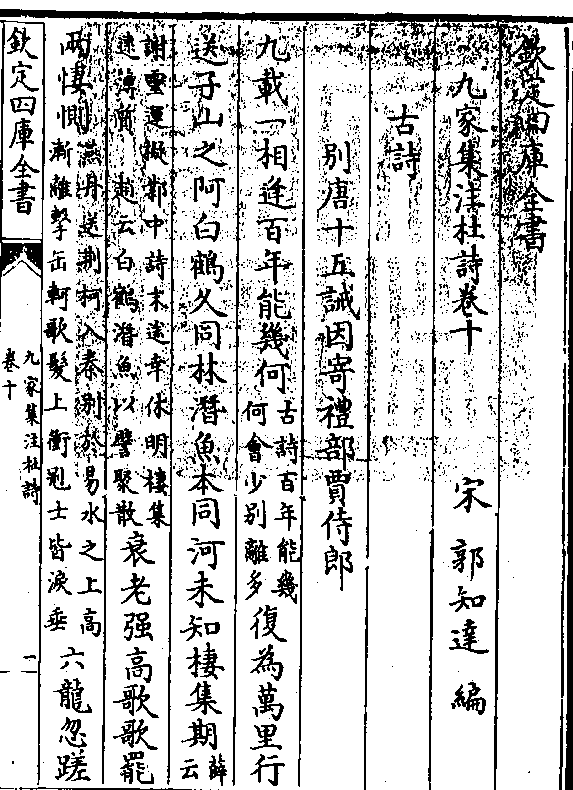 欽定四庫全書
九家集注杜詩卷十 宋 郭知達 編
古詩
别唐十五誡因寄禮部賈侍郎
九載一相逢百年能幾何
古詩百年能幾
何會少别離多
復為萬里行
送子山之阿白鶴久同林潛魚本同河未知棲集期
薛
云
謝靈運擬鄴中詩末途幸休明棲集
薄質 趙云白鶴潛魚以譬聚散
衰老强高歌歌罷
兩悽惻
燕丹送荆軻入秦别於易水之上高
漸離擊缶軻歌髮上衝冠士皆淚垂
六龍忽蹉
欽定四庫全書
九家集注杜詩
卷十
一